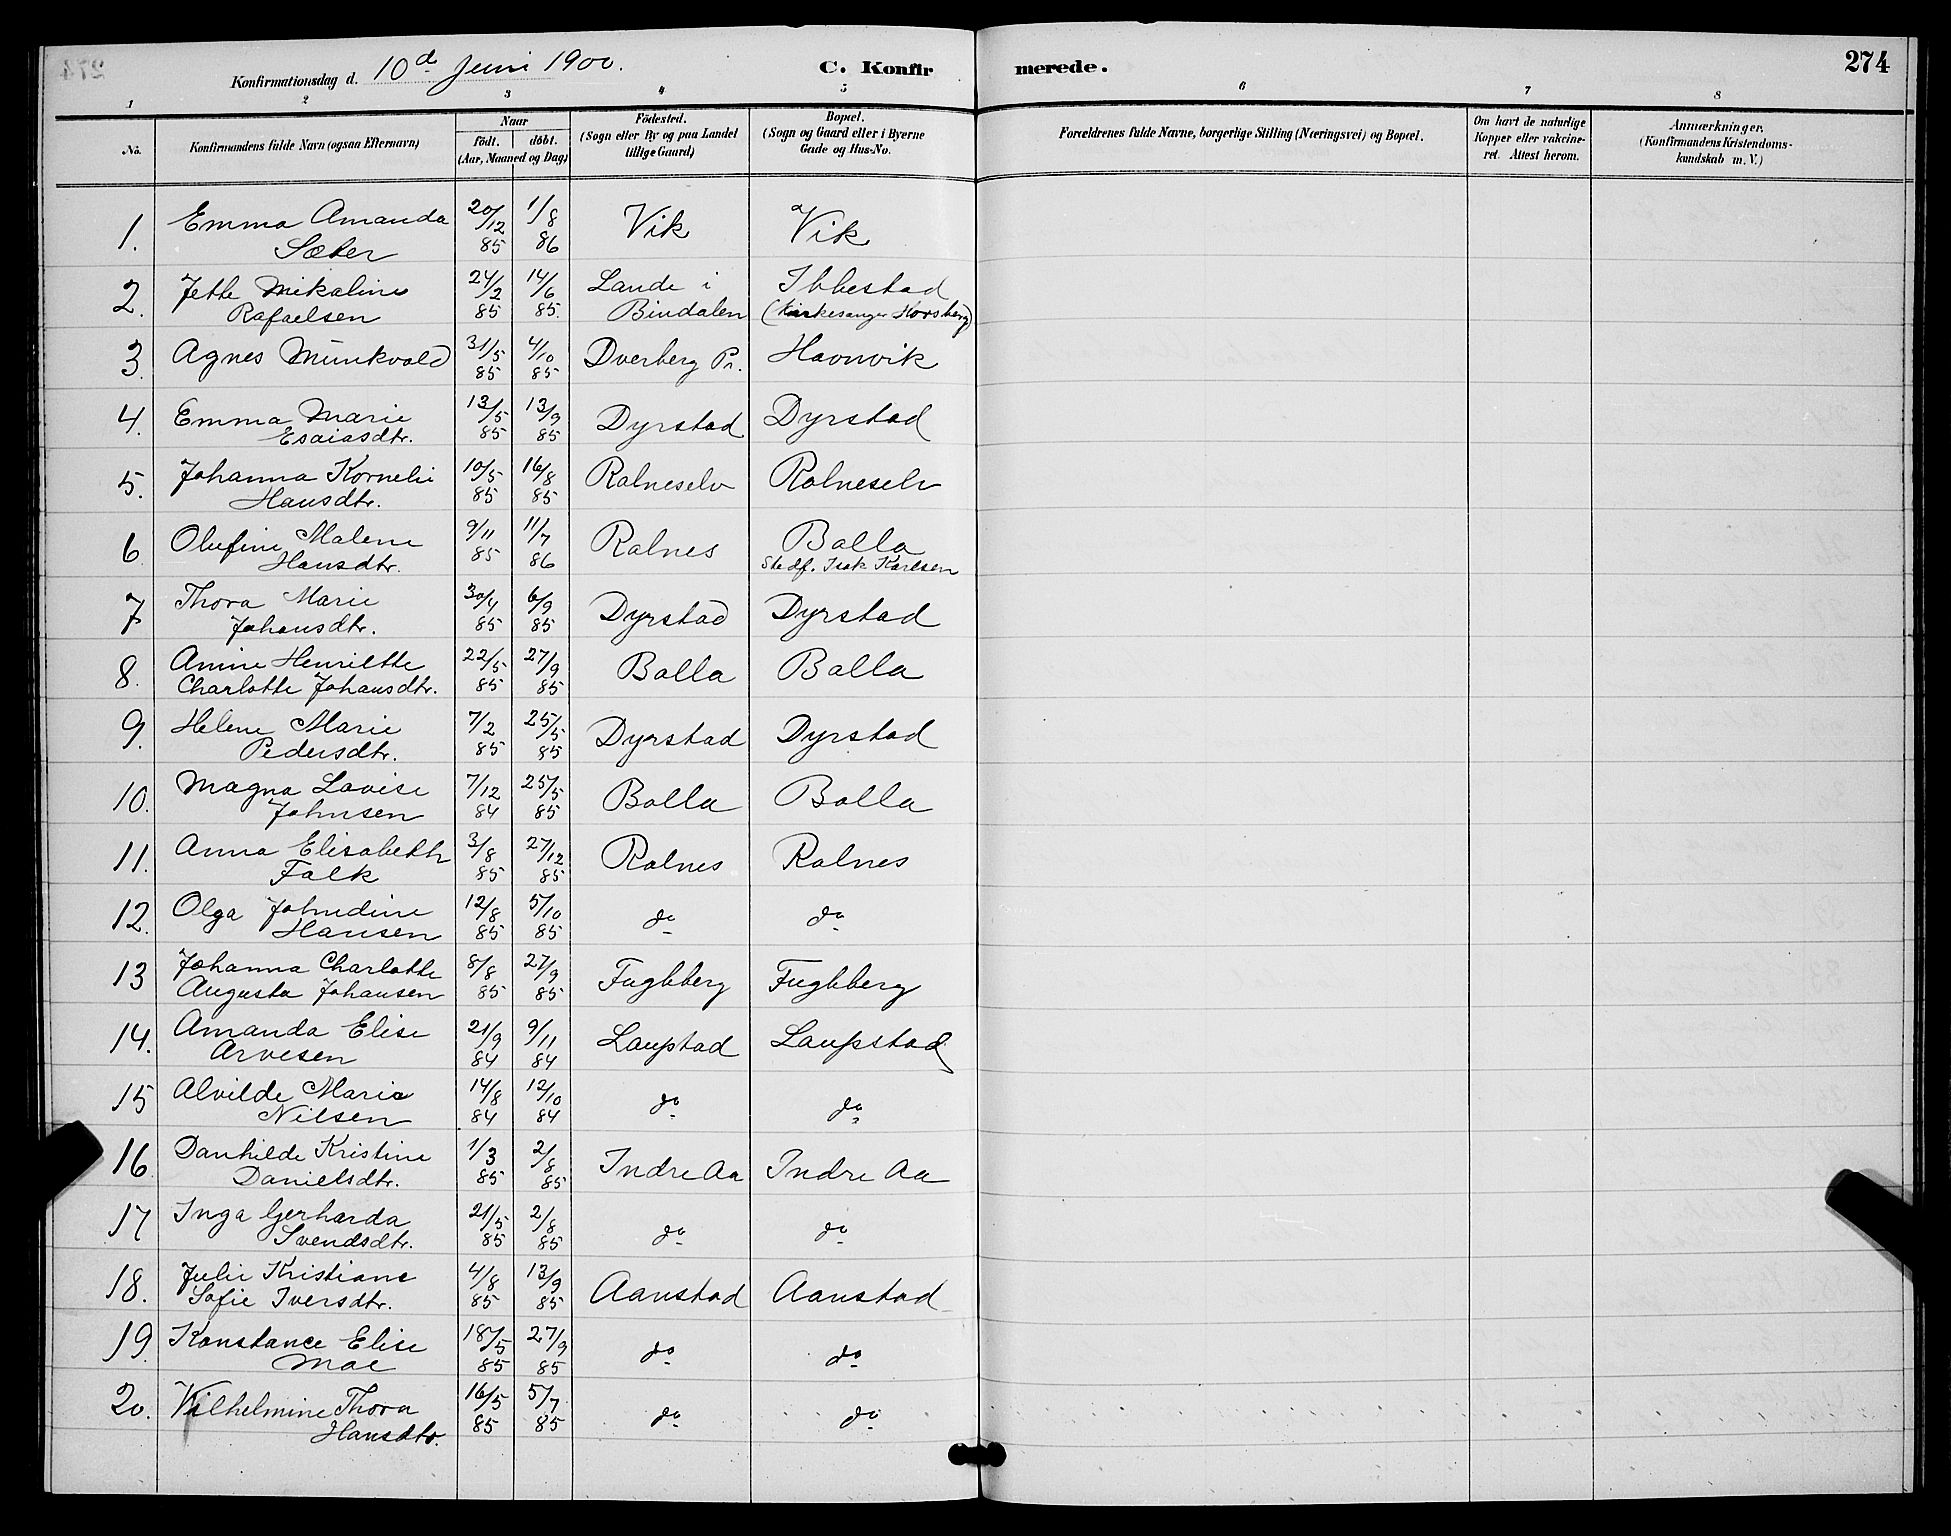 Konfirmationsdag d. 10d Juni 1900. C. Konfirmerede. 274
1 2 3 4 5 6 7 8
No.
Konfirmandens fulde Navn (ogsaa Efternavn)
Naar
født. døbt.
(Aar, Maaned og Dag)
Fødested.
(Sogn eller By og paa Landet
tillige Gaard)
Bopæl.
(Sogn og Gaard eller i Byerne
Gade og Hus-No.
Forældrenes fulde Navne, borgerlige Stilling (Næringsvei) og Bopæl.
Om havt de naturlige
Kopper eller vakcine-
ret. Attest herom.
Anmærkninger,
(Konfirmandens Kristendoms-
kundskab m. V.)
1. Emma Amanda 20/12 1/8 Vik Vik
Sæter 85 86
2. Jette Mikaline 24/2 14/6 Lande i Ibbestad
Rafaelsen 85 85. Bindalen (Kirkesanger Horsberg)
3. Agnes Munkvold 31/5 4/10 Dverberg Pr. Havnvik
85 85
4. Emma Marie 13/5 13/9 Dyrstad Dyrstad
Esaiasdtr. 85 85
5. Johanna Korneli 10/5 16/8 Rolneselv Rolneselv
Hansdtr. 85 85
6 Olufine Malene 9/11 11/7 Rolnes Bolla
Hansdtr. 85 86 Stedf. Isak Karlsen
7 Thora Marie 30/4 6/9 Dyrstad Dyrstad
Johansdtr. 85 85
8. Amine Henriette 22/5 27/9 Bolla Bolla
Charlotte Johansdtr. 85 85
9. Helene Marie 7/2 25/5 Dyrstad Dyrstad
Pedersdtr. 85 85
10. Magna Lovise 7/12 25/5 Bolla Bolla
Johnsen 84 85
11. Anna Elisabeth 3/8 27/12 Rolnes Rolnes
Falk 85 85
12. Olga Johndine 12/8 5/10 do do
Hansen 85 85
13 Johanna Charlotte 8/8 27/9 Fuglberg Fuglberg
Augusta Johansen 85 85
14. Amanda Elise 21/9 9/11 Laupstad Laupstad
Arvesen 84 84
15 Alvilde Marie 14/8 12/10 do do
Nilsen 84 84
16 Danhilde Kristine 1/3 2/8 Indre Aa Indre Aa
Danielsdtr. 85 85
17 Inga Gerharda 21/5 2/8 do do
Svendsdtr. 85 85
18. Julie Kristiane 4/8 13/9 Aanstad Aanstad
Sofie Iversdtr. 85 85
19. Konstance Elise 18/5 27/9 do do
Moe 85 85
20. Vilhelmine Thora 16/5 5/7 do do
Hansdtr. 85 85